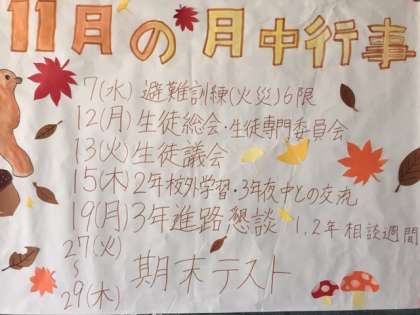 11月の月中行事
7(水) 避難訓練(火災)6限
12(月) 生徒総会・生徒専門委員会
13(火) 生徒議会
15(木) 2年校外学習・3年夜中との交流
19(月) 3年進路懇談 1,2年相談週間
27(火)
〜
29(木) 期末テスト